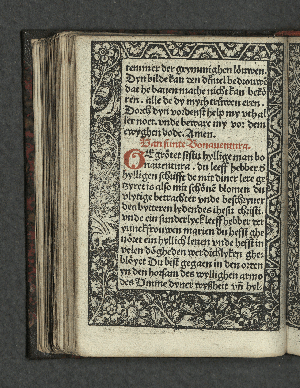 tenmer der grymmighen louwen.
Dyn bilde kan den düuel bedrouwe
dat he batten mach nicht kan bekö
ren. alle de dy mych truwen eren.
Dorch dyn vordenst help my vth al
ler noet. vnde beware my vor dem
ewyghen dode. Amen.
Van sunte Bonauentura.
Gegrötet sistu hyllige man bo
nauentura. du leeff hebber
hylligen schrifft de mit diner lere ge
zyret is also mit schöne blomen du
vlytige betrachter vnde beschryuer
des bytteren lydendes ihesu christi.
vnde ein sunderlyck leeff hebber der
iunckfrouwen marien du hefst ghe
vöret ein hyllich leuen vnde hefst in
velen dögheden werdichlyken ghe
blöyet Du bist gegaen in den orden
yn den horsam des wyllighen armo
des Vmme dyner wyßheit vn hyl-